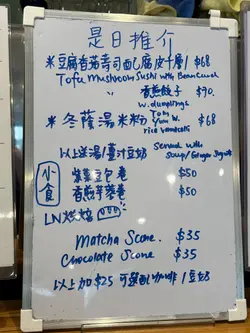 是日推介
* 豆腐香菇壽司配腐皮卷 $68
Tofu mushroom sushi with Beancurd
香煎餃子 $70.
w. dumplings
* 冬蔭湯米粉 Tom Yum w. rice vermicelli $68
以上送湯/薑汁豆奶 Served with Soup/Ginger Soymilk
小食
豆包卷 $50
香煎芋菜卷 $50
LN 烘焙
Matcha Scone. $35
Chocolate Scone $35
以上加 $25 可選配咖啡/豆奶